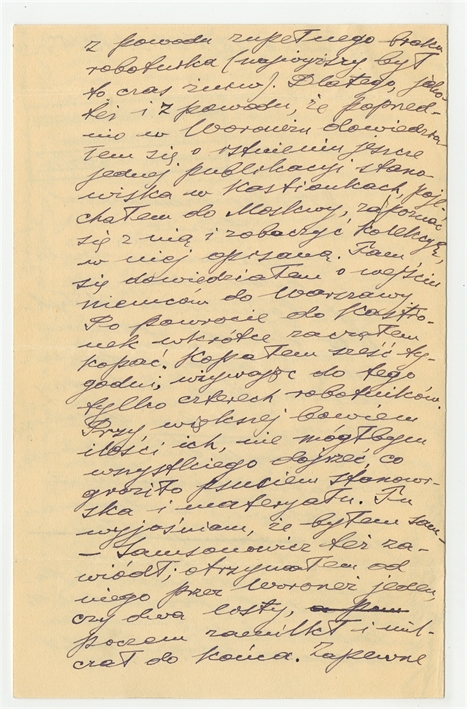 z powodu zupełnego braku
robotnika (najwyższy był
to czas żniw). Dlatego jako-
też i z powodu, że poprzed-
nio w Woroneżu dowiedzia-
łem się o istnieniu jeszcze
jednej publikacyi stano-
wiska w Kostionkach, poje-
chałem do Moskwy, zapoznać
się z nią i zobaczyć kolekcyę,
w niej opisaną. Tam
się dowiedziałem o wejściu
niemców do Warszawy.
Po powrocie do Kostio-
nek wkrótce zacząłem
kopać. Kopałem sześć ty-
godni, wzywając do tego
tylko czterech robotników.
Przy większej bowiem
ilości ich, nie mógłbym
wszystkiego dojrzeć co
groziło psuciem stanowi-
ska i materyału. Tu
wyjaśniam, że byłem sam-
- Samsonowicz też za-
wiódł; otrzymałem od
niego przez Woroneż jeden,
czy dwa listy,
poczem zamilkł i mil-
czał do końca. Zapewne